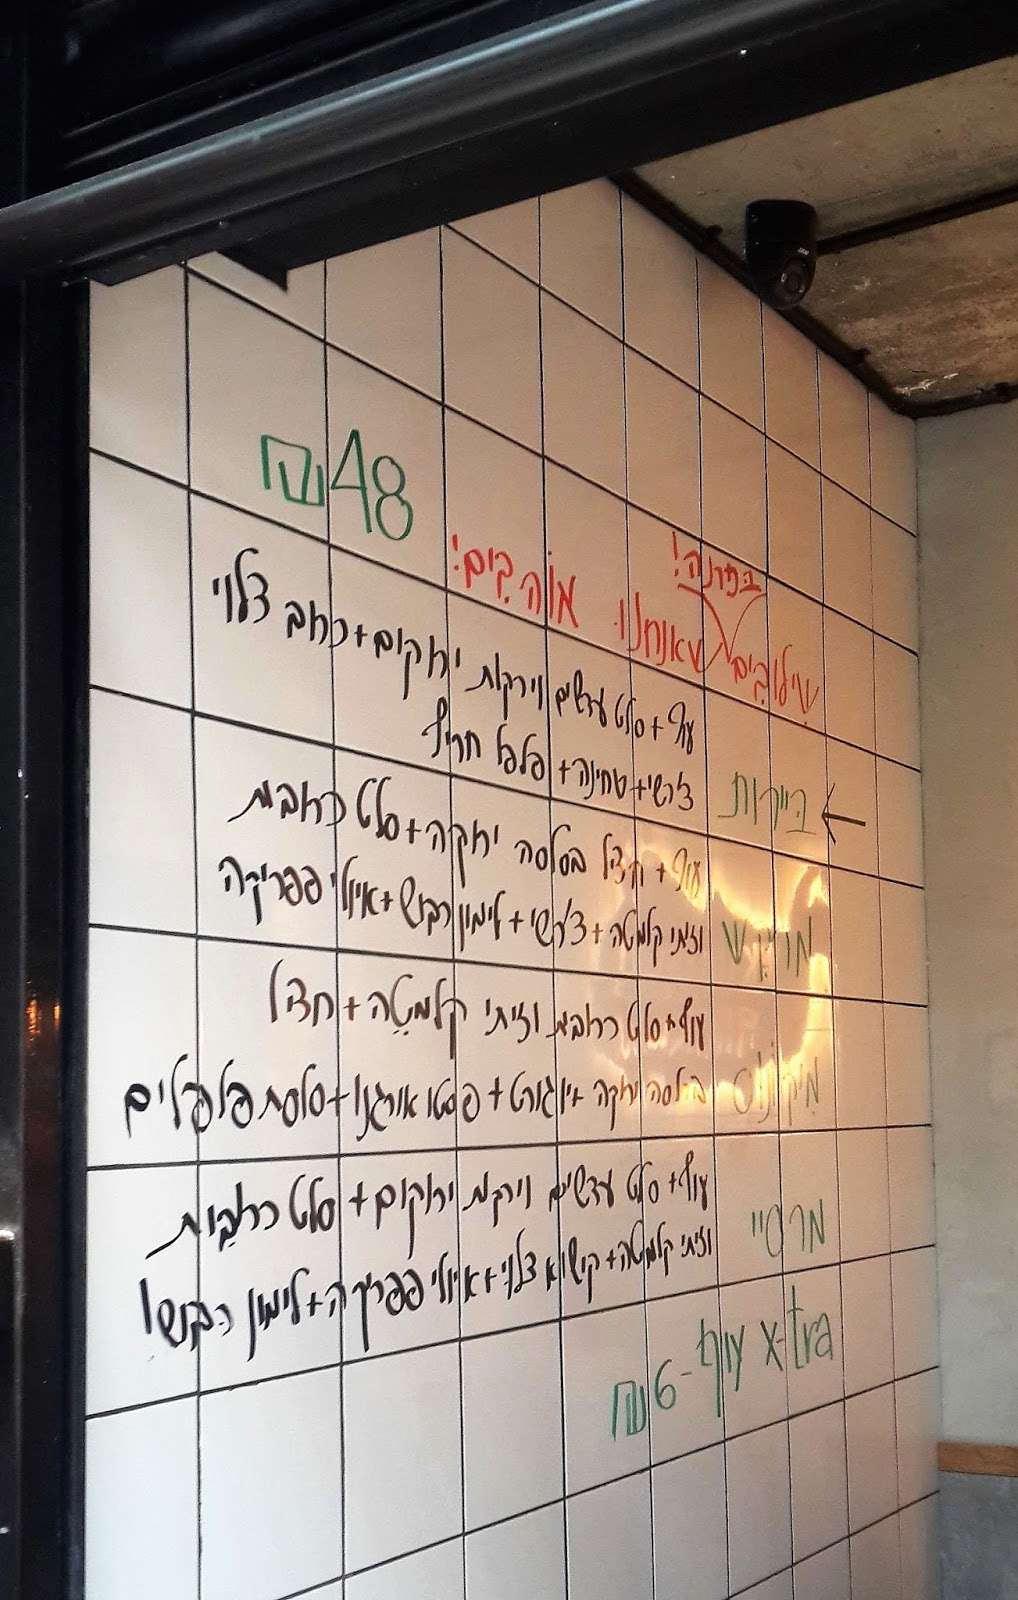 ₪48
בפרנה!
שילובים שאנחנו אוהבים!
עוף + סלט עדשים וירקות ירוקים + כרוב צלוי
ביירות
צ'רשי + טחינה + פלפל חריף
עוף + חציל בסלסה ירוקה + סלט כרובית
מרקש
וזיתי קלמטה + צ'רשי + לימון כבוש + איולי פפריקה
עוף + סלט כרובית וזיתי קלמטה + חציל
מיקונוס
בסלסה ירוקה + יוגורט + פסטו אורגנו + סלסת פלפלים
עוף + סלט עדשים וירקות ירוקים + סלט כרובית
מרסיי
וזיתי קלמטה + קישוא צלוי + איולי פפריקה + לימון כבוש!
x-tra עוף - 6₪